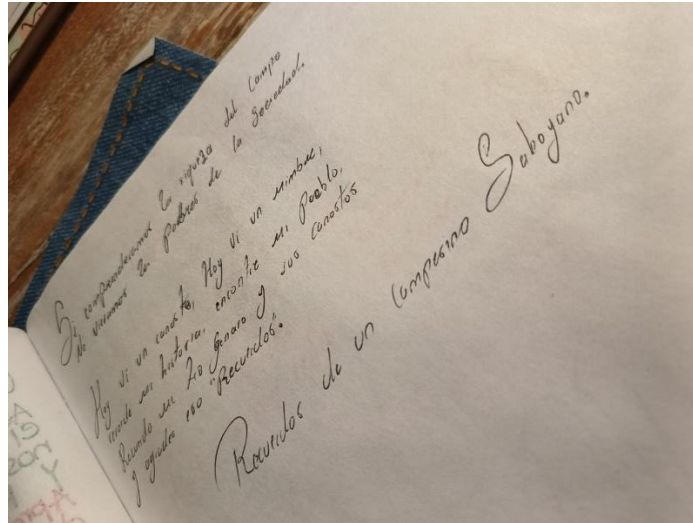 Si comprendieramos la riqueza del campo
No viviamos la pobreza de la Sociedad.
Hoy vi un canasto, Hoy vi un mimbre,
recorde mi historia, encontre mi Pueblo,
Recuerdo mi tio Genaro y sus canastos
y agradesco "Recuerdos".
Recuerdos de un campesino Saboyano.